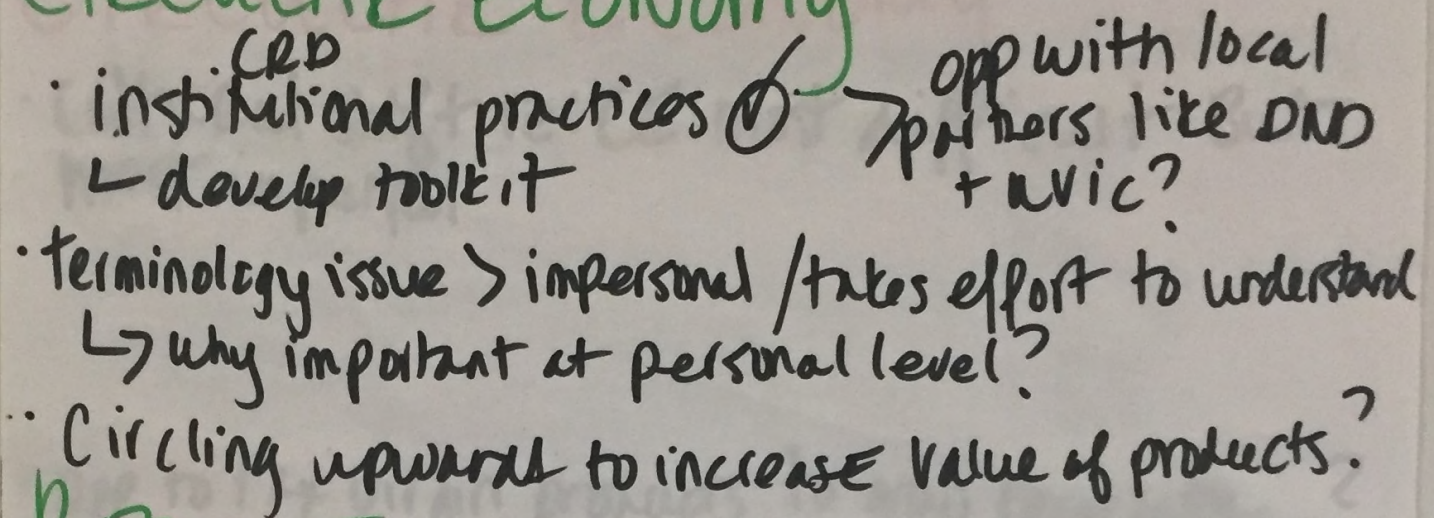 economy
CRD
· institutional practices → opp with local
partners like DND
+ uvic?
↳ develop toolkit
· terminology issue > impersonal / takes effort to understand
↳ why important at personal level?
·· Circling upwards to increase value of products?